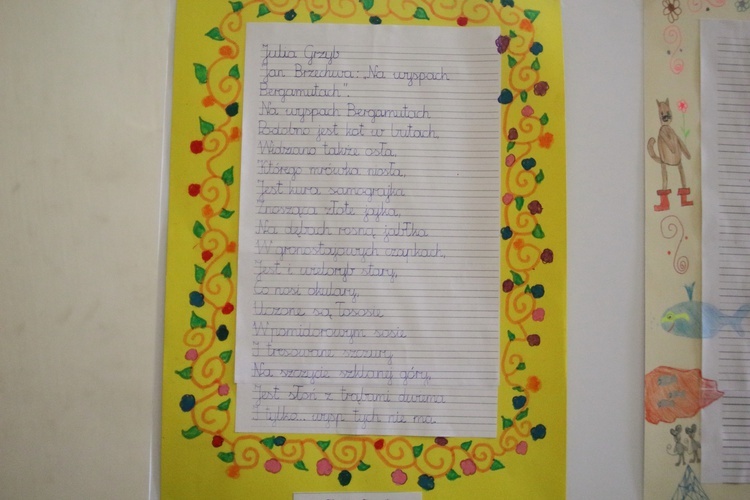 Julia Grzyb
Jan Brzechwa: „Na wyspach
Bergamutach”.
Na wyspach Bergamutach
Podobno jest kot w butach,
Widziano także osła,
Którego mrówka niosła,
Jest kura samograjka
Znosząca złote jajka,
Na dębach rosną jabłka
W gronostajowych czapkach,
Jest i wieloryb stary,
Co nosi okulary,
Uczone są łososie
W pomidorowym sosie
I tresowane szczury
Na szczycie szklanej góry,
Jest słoń z trąbami dwoma
I tylko... wysp tych nie ma.